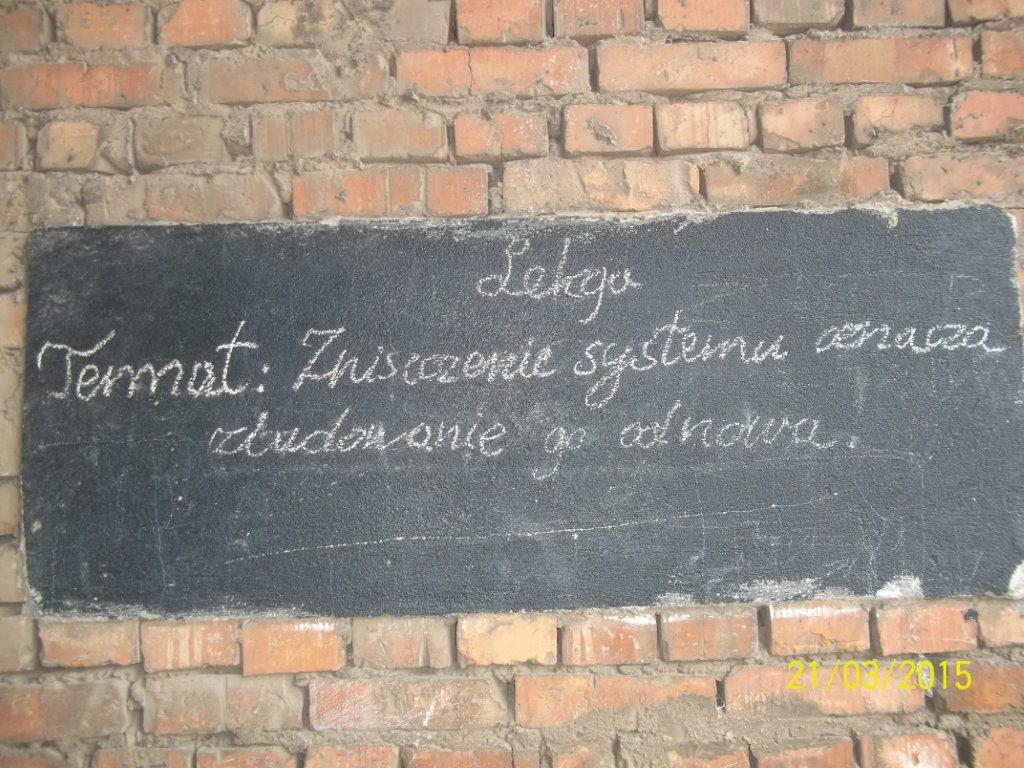 Lekcja
Temat: Zniszczenie systemu oznacza
zbudowanie go od nowa.
21/03/2015